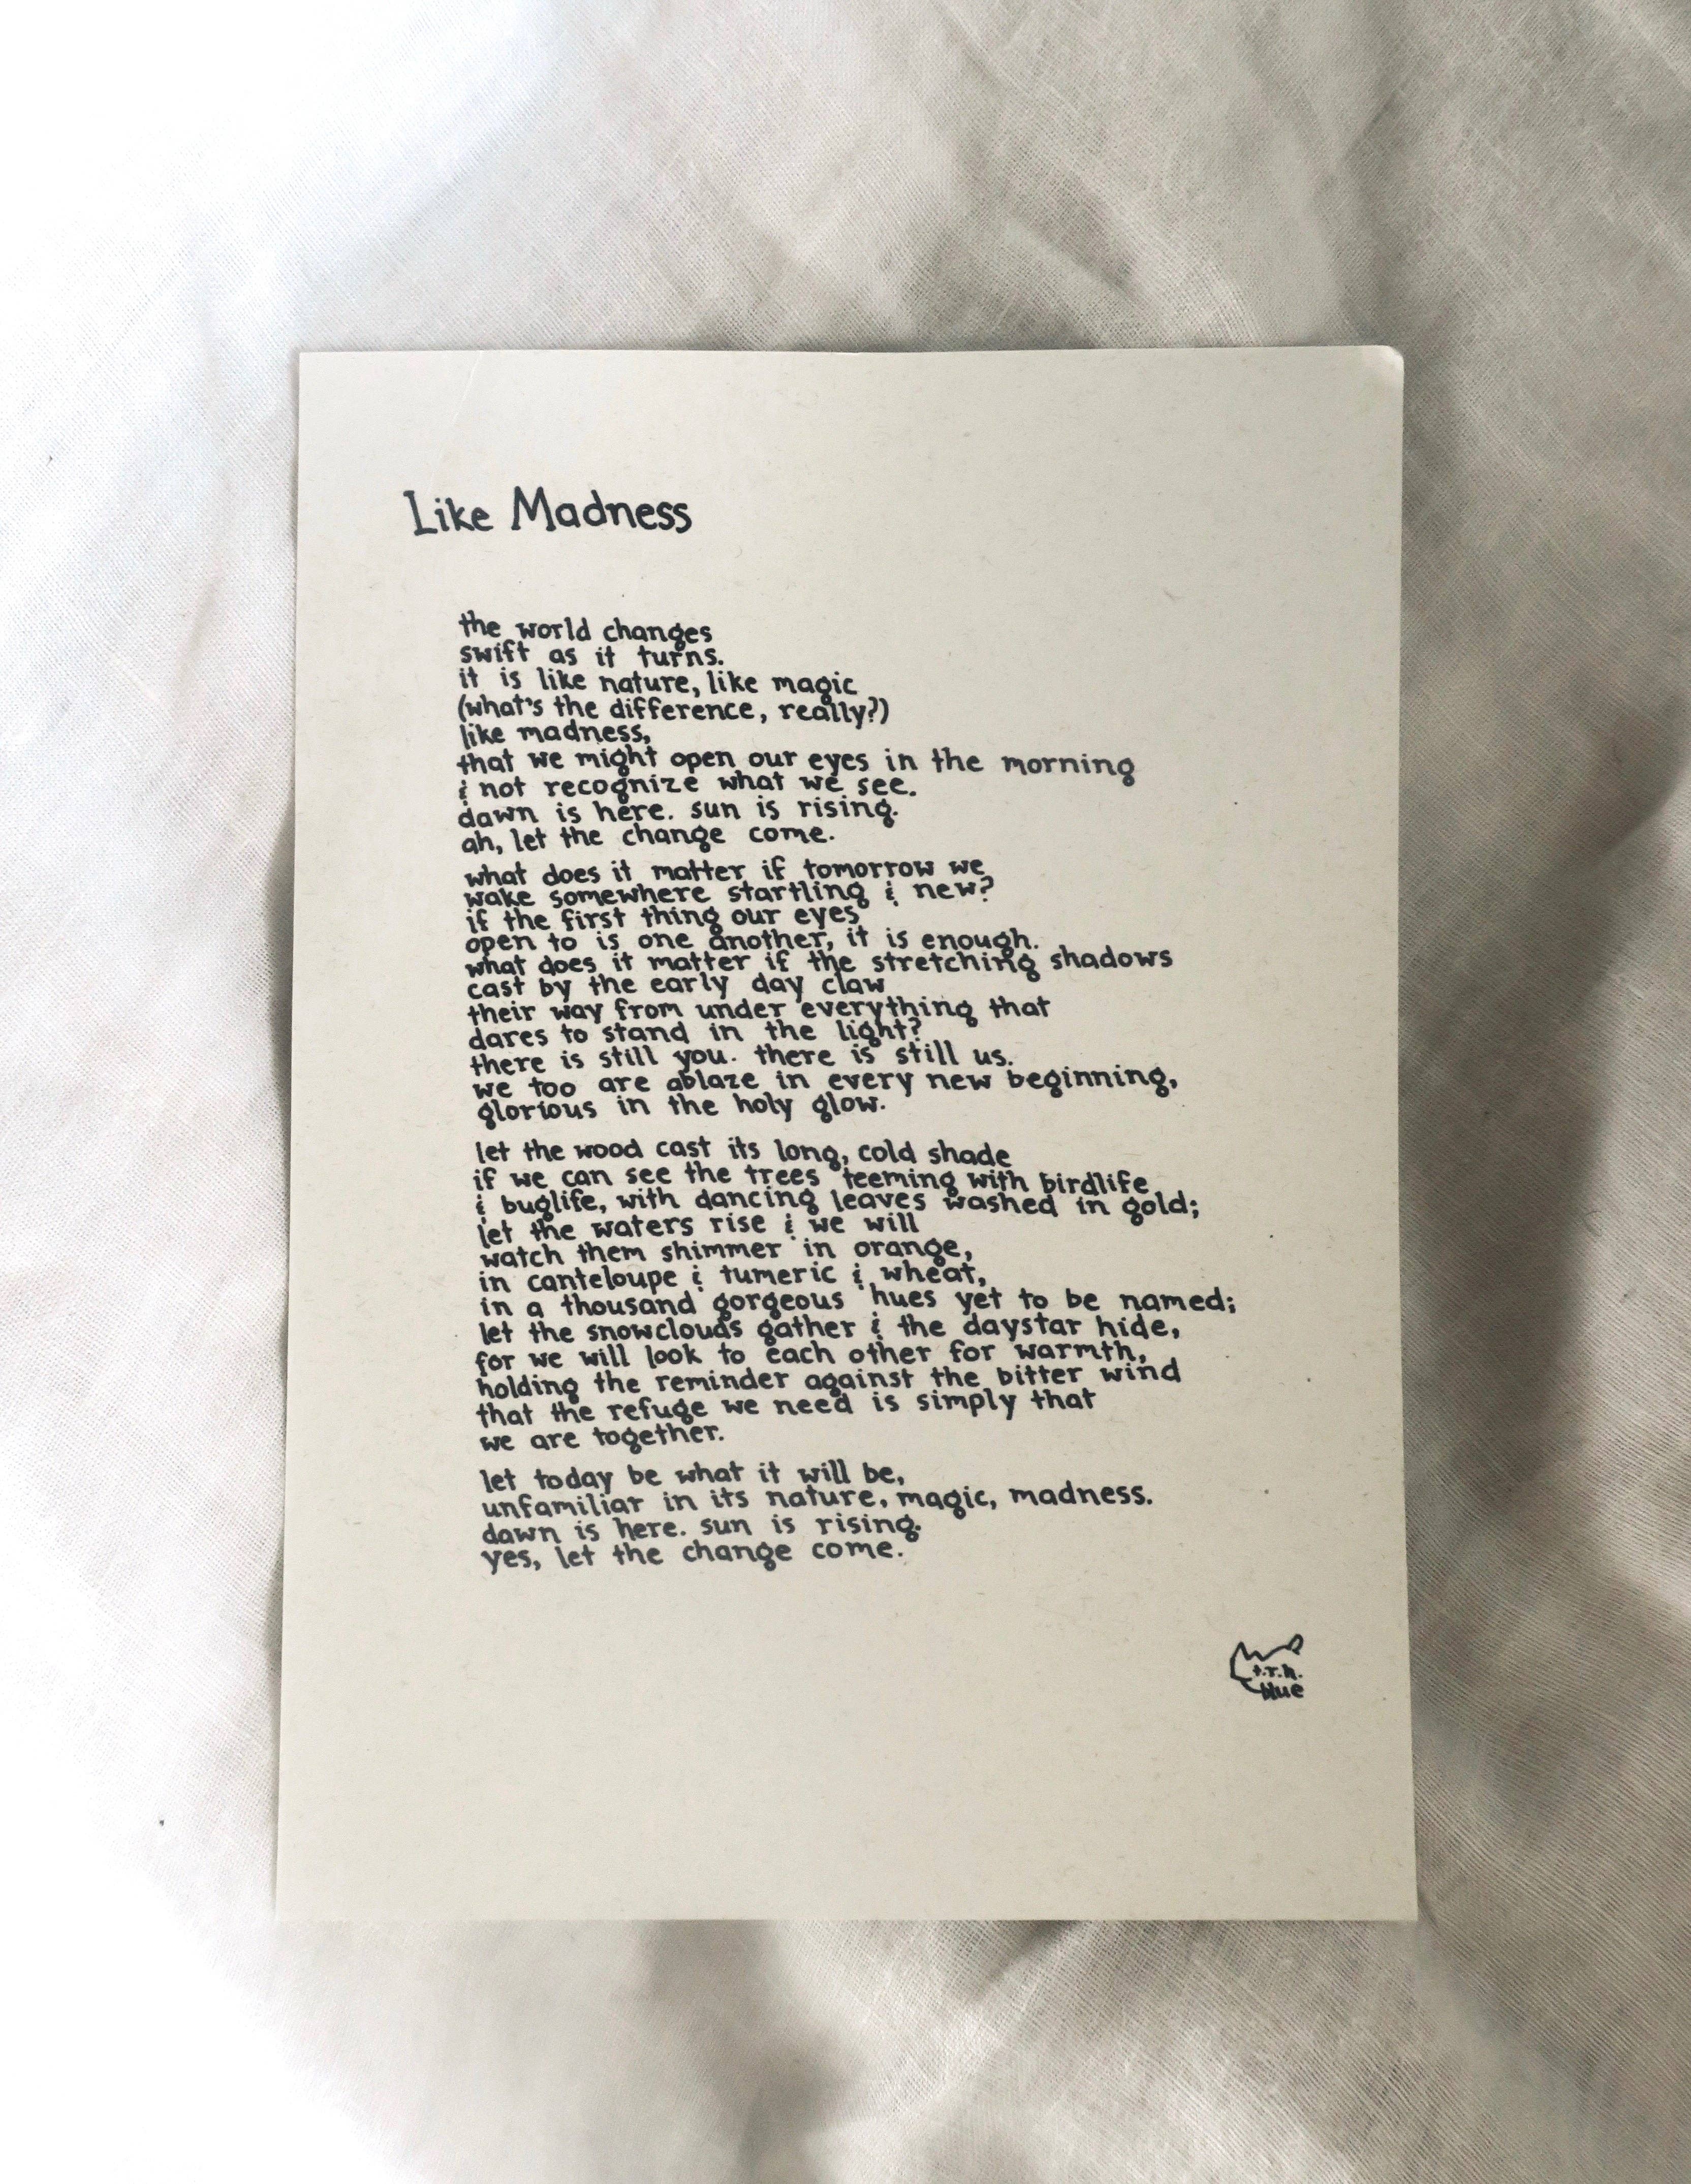 Like Madness
the world changes
swift as it turns.
it is like nature, like magic
(what's the difference, really?)
like madness,
that we might open our eyes in the morning
& not recognize what we see.
dawn is here. sun is rising.
ah, let the change come.
what does it matter if tomorrow we
wake somewhere startling & new?
if the first thing our eyes
open to is one another, it is enough.
what does it matter if the stretching shadows
cast by the early day claw
their way from under everything that
dares to stand in the light?
there is still you. there is still us.
we too are ablaze in every new beginning,
glorious in the holy glow.
let the wood cast its long, cold shade
if we can see the trees teeming with birdlife
& buglife, with dancing leaves washed in gold;
let the waters rise & we will
watch them shimmer in orange,
in canteloupe & tumeric & wheat,
in a thousand gorgeous hues yet to be named;
let the snowclouds gather & the daystar hide,
for we will look to each other for warmth,
holding the reminder against the bitter wind
that the refuge we need is simply that
we are together.
let today be what it will be,
unfamiliar in its nature, magic, madness.
dawn is here. sun is rising.
yes, let the change come.
t.r.h.
blue